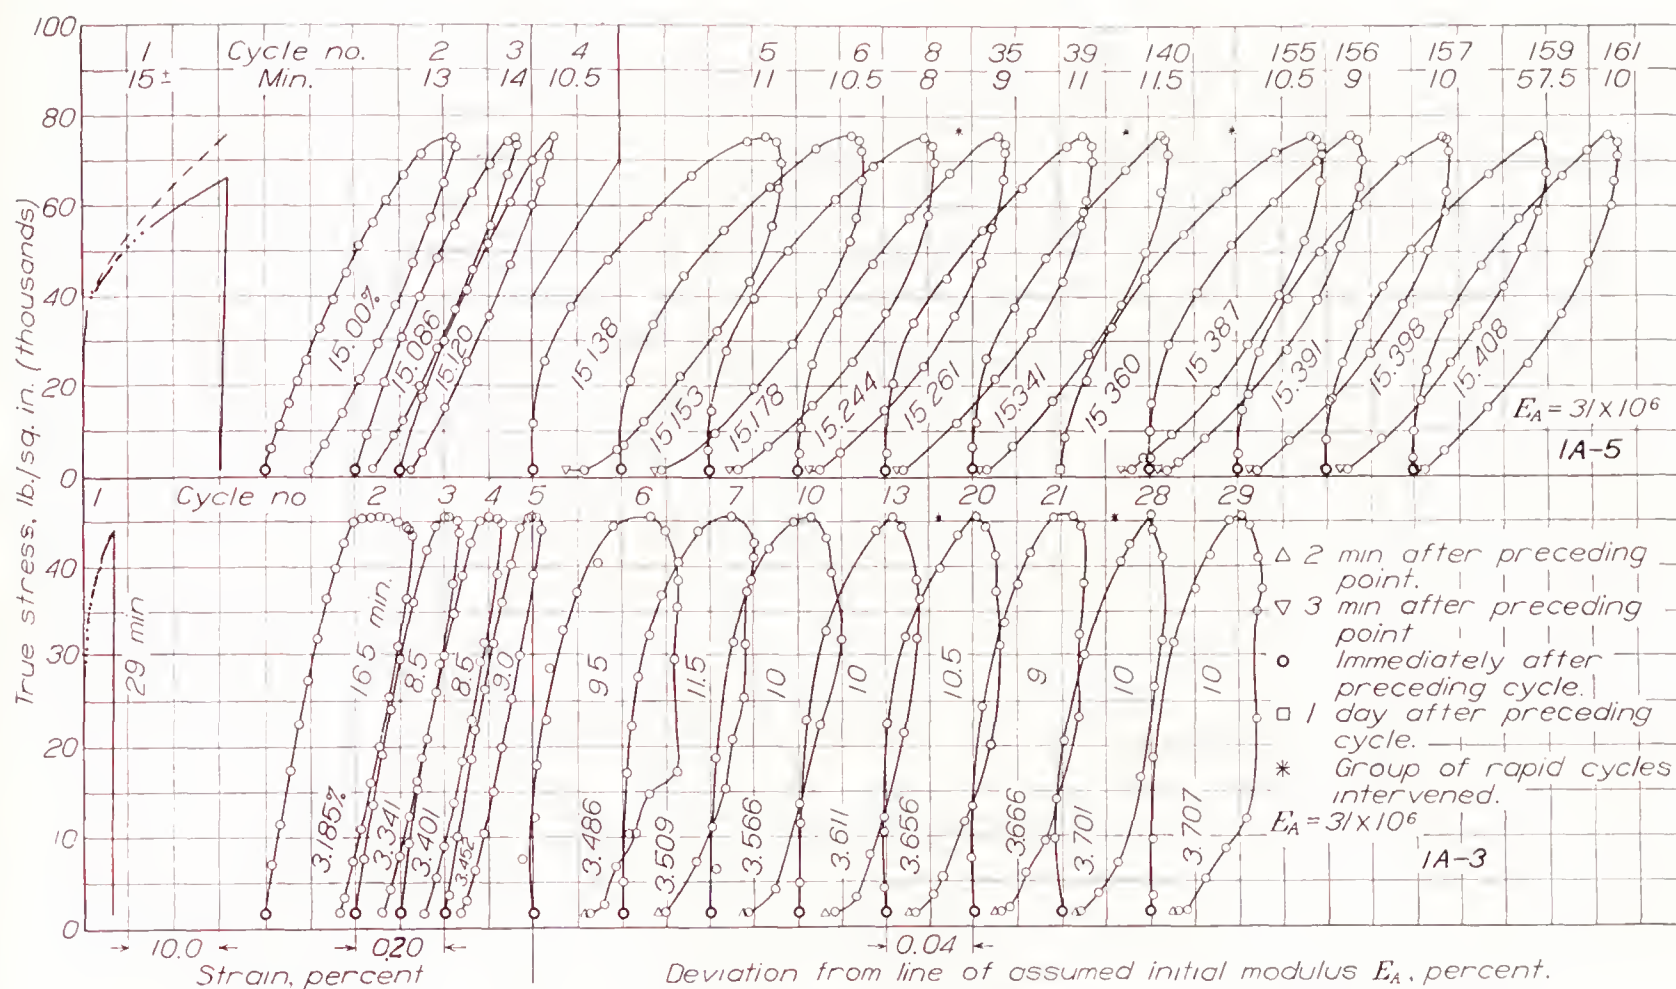 100
80
60
40
20
0
40
30
20
10
0
True stress, lb./sq. in. (thousands)
1 Cycle no. 2 3 4 5 6 8 35 39 140 155 156 157 159 161
15± Min. 13 14 10.5 11 10.5 8 9 11 11.5 10.5 9 10 57.5 10
15.00% 15.086 15.120 15.138 15.153 15.178 15.244 15.261 15.341 15.360 15.387 15.391 15.398 15.408
E_A = 31×10⁶
1A-5
1 Cycle no 2 3 4 5 6 7 10 13 20 21 28 29
29 min 16.5 min. 8.5 8.5 9.0 9.5 11.5 10 10 10.5 9 10 10
3.185% 3.341 3.401 3.452 3.486 3.509 3.566 3.611 3.656 3.666 3.701 3.707
△ 2 min after preceding
point.
▽ 3 min after preceding
point
○ Immediately after
preceding cycle.
□ 1 day after preceding
cycle.
* Group of rapid cycles
intervened.
E_A = 31×10⁶
1A-3
10.0 0.20 0.04
Strain, percent
Deviation from line of assumed initial modulus E_A, percent.